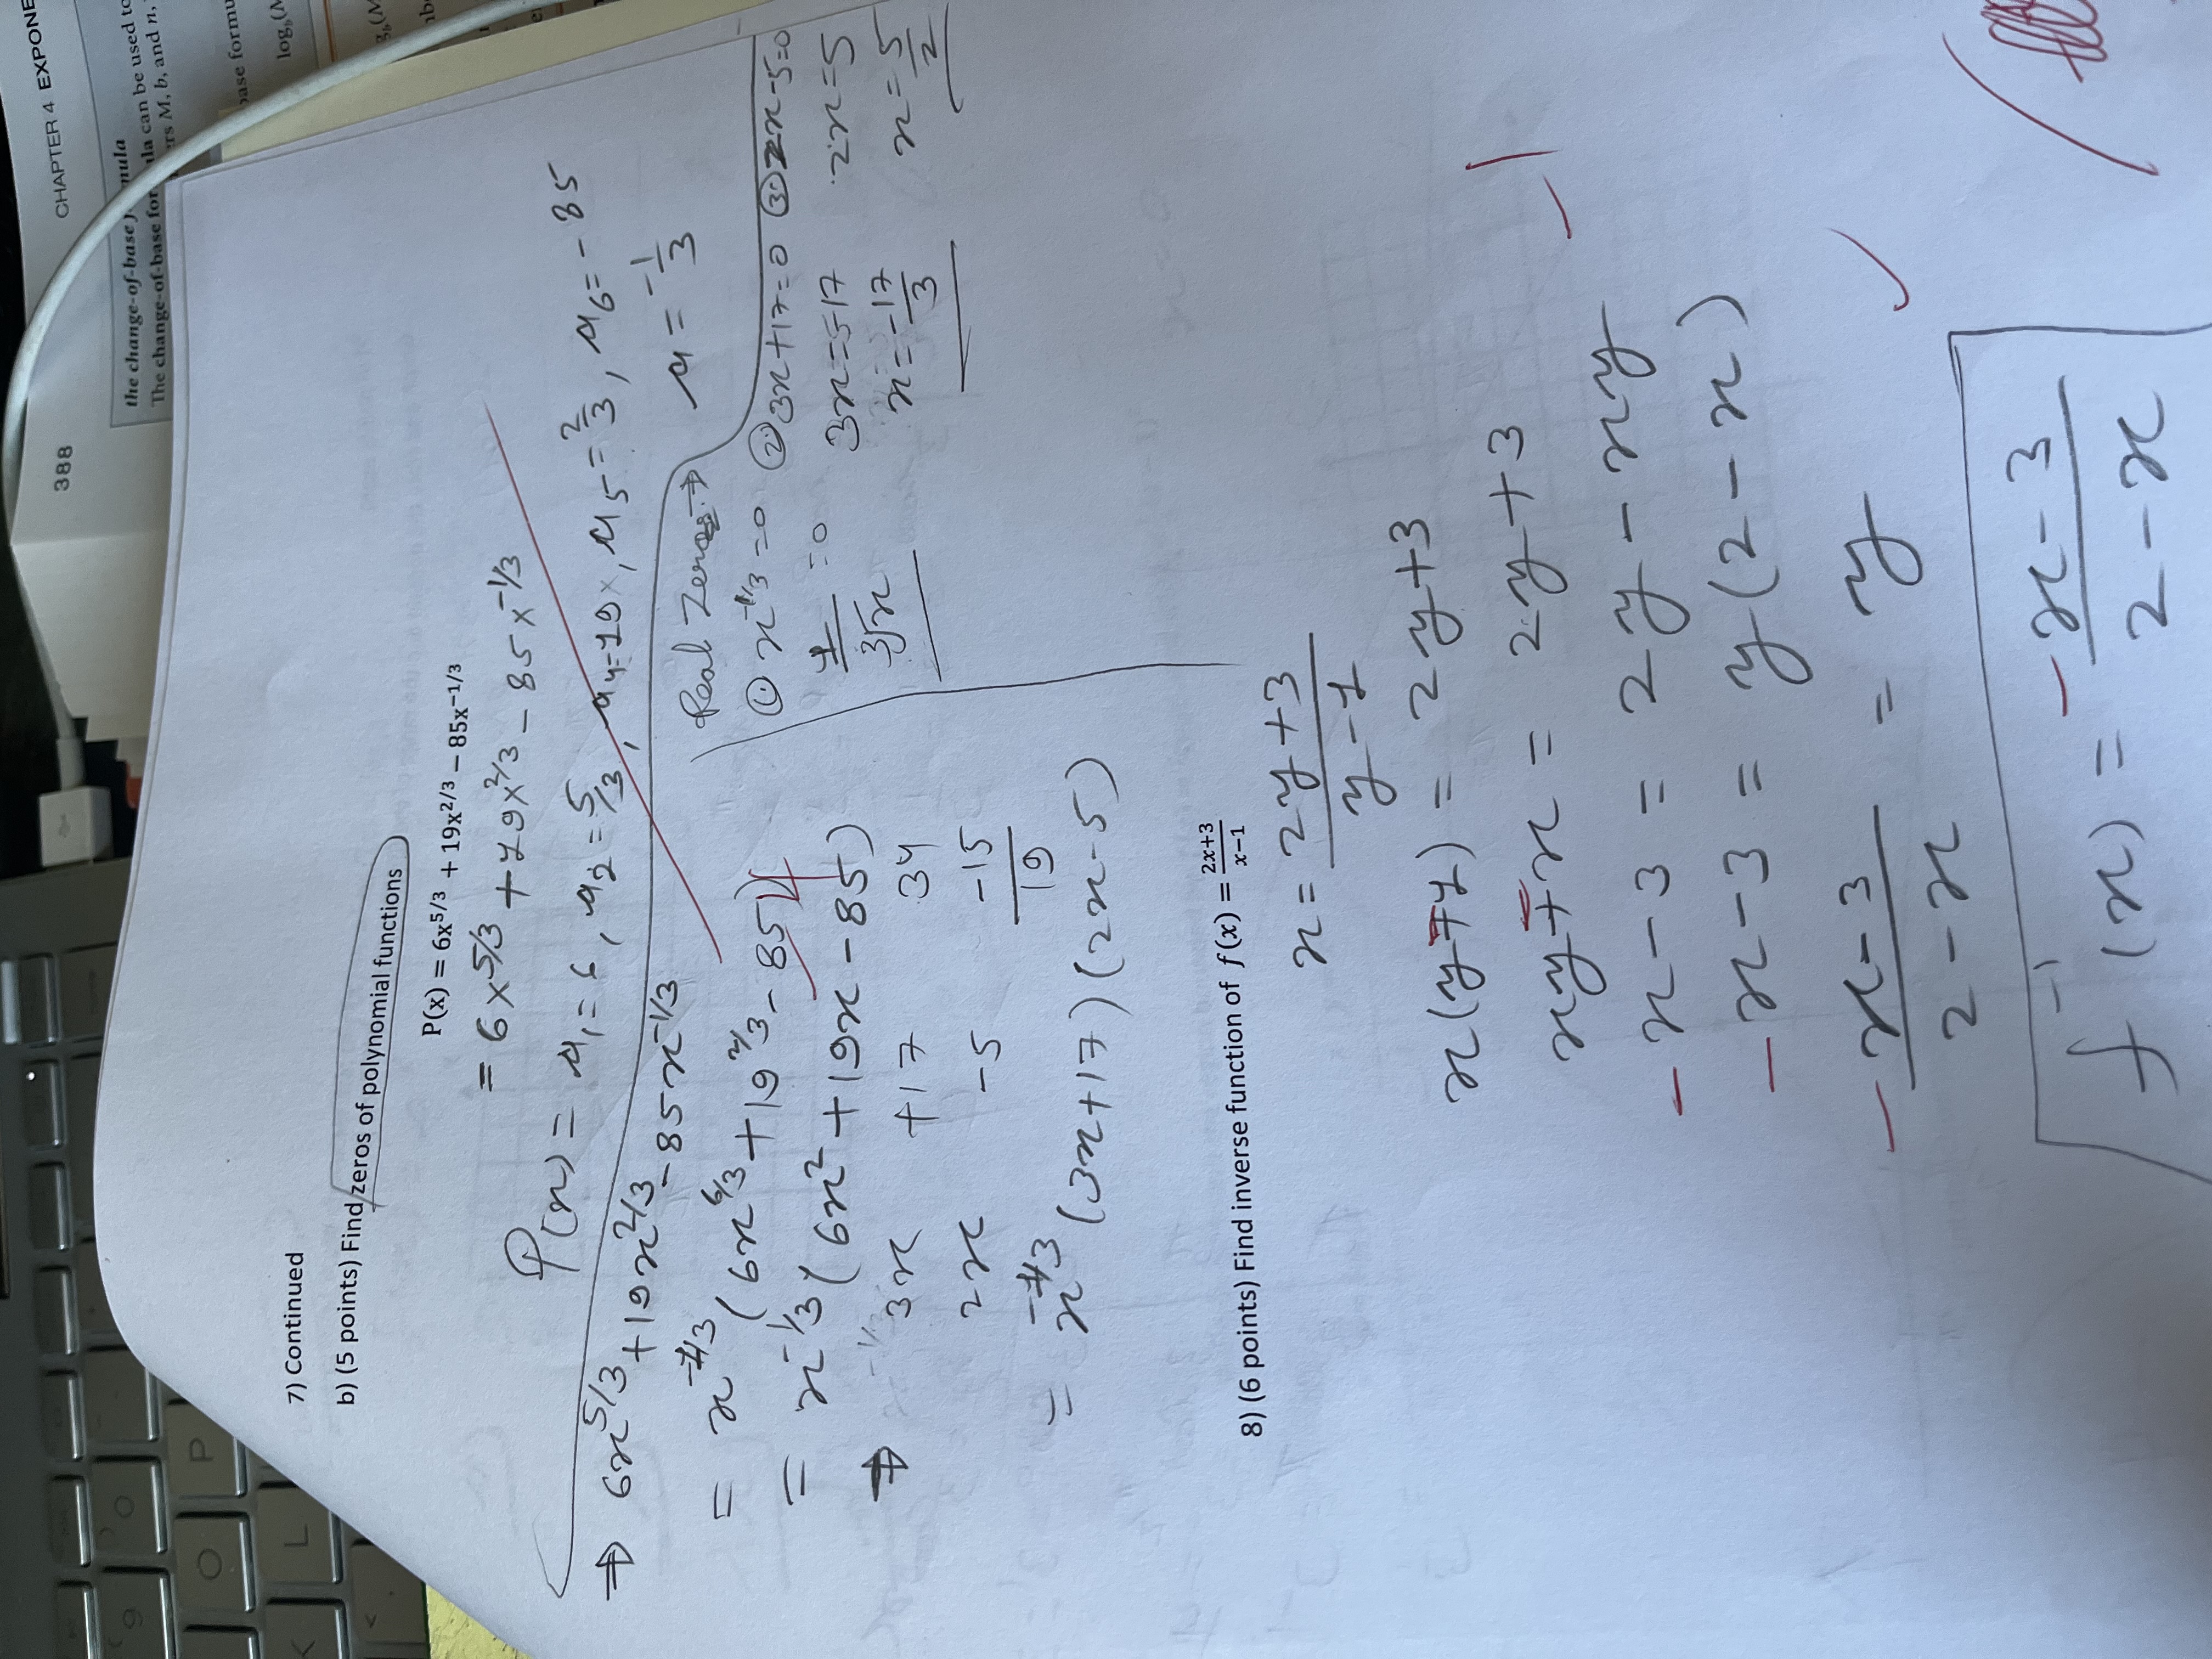 CHAPTER 4 EXPONE
388
the change-of-base
mula
The change-of-base for
la can be used to
rs M, b, and n,
base formu
7) Continued
b) (5 points) Find zeros of polynomial functions
P(x) = 6x^5/3 + 19x^2/3 − 85x^−1/3
= 6x^5/3 + 19x^2/3 − 85x^−1/3
P(x) = a₁ = 6, a₂ = 5/3, a₄ = 19x, a₅ = 2/3, a₆ = −85
a = −1/3
⇒ 6x^5/3 + 19x^2/3 − 85x^−1/3
= x^−1/3 (6x^6/3 + 19^3/3 − 85)
= x^−1/3 (6x² + 19x − 85)
⇒ 3x +17 34
2x −5 −15
19
= x^−1/3 (3x+17)(2x−5)
Real Zeros →
① x^−1/3 = 0 ② 3x+17=0 ③ 2x−5=0
1/∛x = 0 3x=−17 2x=5
x=−17/3 x=5/2
8) (6 points) Find inverse function of f(x) = (2x+3)/(x−1)
x = (2y+3)/(y−1)
x(y−1) = 2y+3
xy − x = 2y+3
−x−3 = 2y − xy
−x−3 = y(2−x)
(−x−3)/(2−x) = y
−1
f⁻¹(x) = (−x−3)/(2−x)